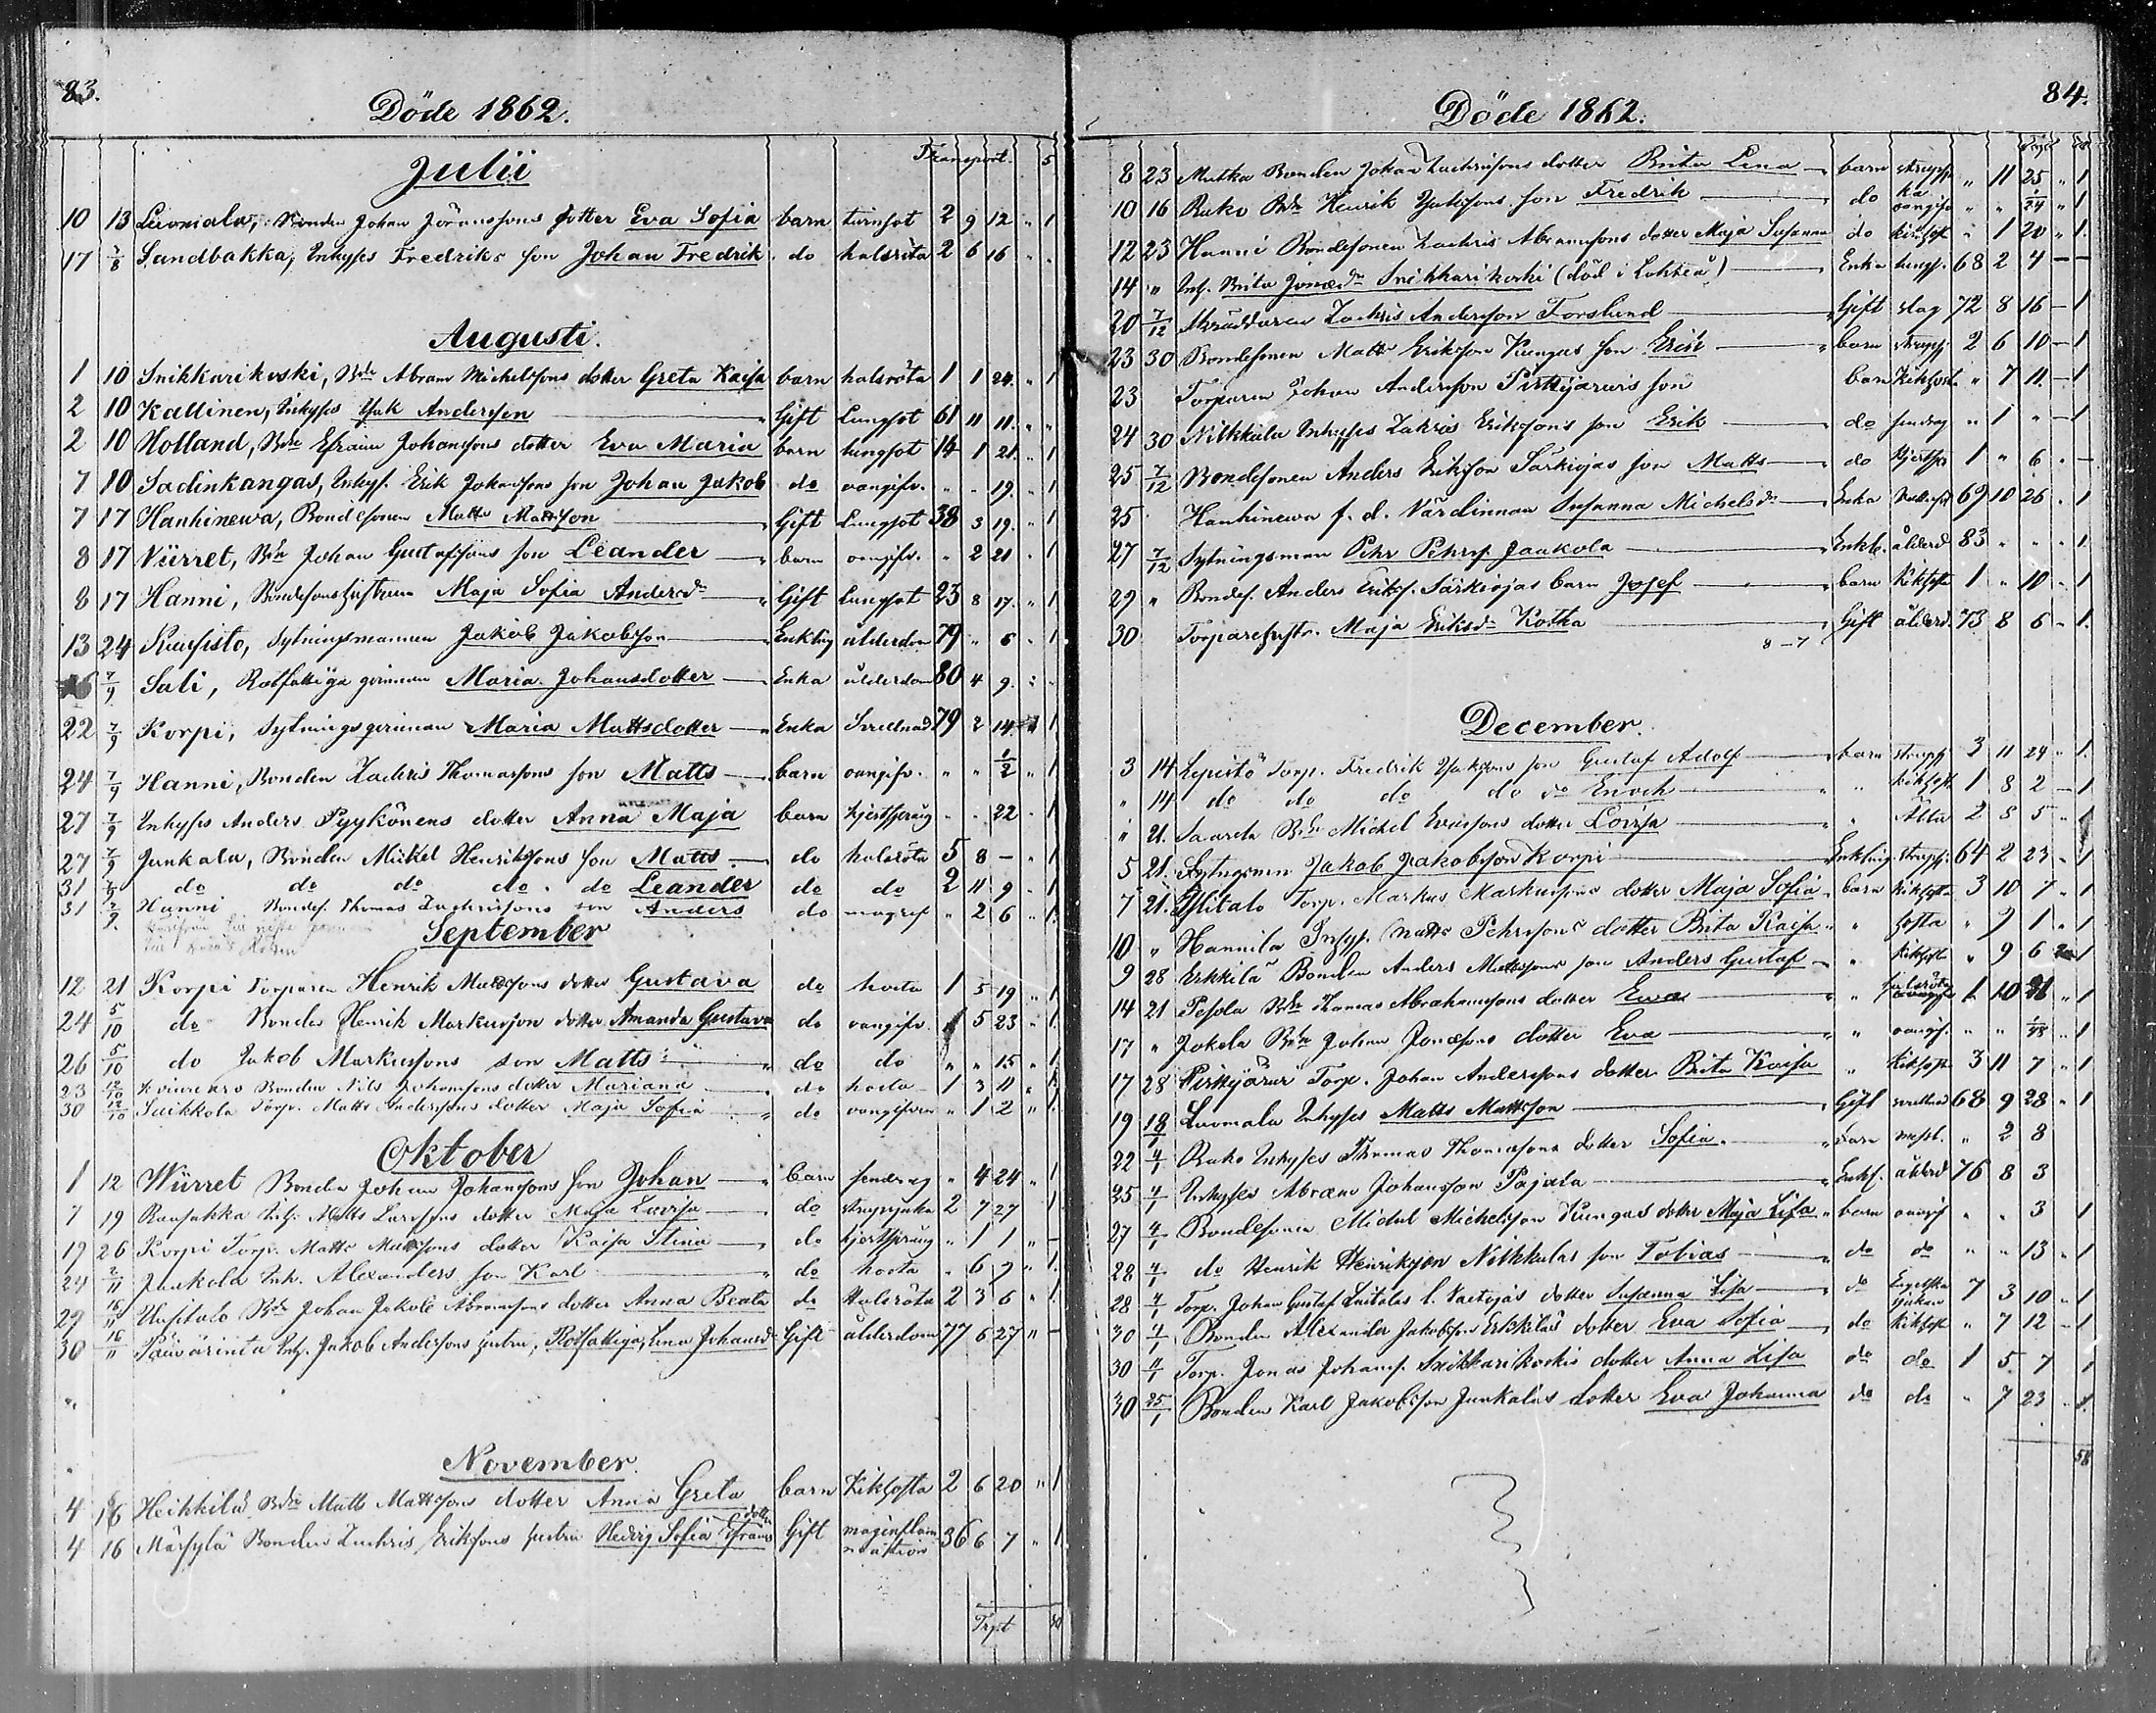 83.
Döde 1862.
Transport. 5
Julii
10 13 Luomala, Bonden Johan Göranssons dotter Eva Sofia barn turnsot 2 9 12 " 1
17 7/8 Sandbakka, Inhyses Fredriks son Johan Fredrik do halsröta 2 6 16 "
Augusti.
1 10 Snikkarikoski, Bde Abram Michelssons dotter Greta Kaisa barn halsröta 1 1 24. " 1
2 10 Kallinen, Inhyses Jak Anderssen Gift Lungsot 61 11 11. " "
2 10 Holland, Bde Efraim Johanssons dotter Eva Maria barn lungsot 14 1 21. " 1
7 10 Sadinkangas, Inhys. Erik Johanssons son Johan Jakob do oangifv. " " 19. " 1
7 17 Hanhinewa, Bondesonen Matts Mattsson Gift Lungsot 38 3 19. " 1
8 17 Würret, Bde Johan Gustafssons son Leander barn oangifv. " 2 21 " 1
8 17 Hanni, Bondesonshustrun Maja Sofia Andersdr Gift Lungsot 23 8 17. " 1
13 24 Sytningsmannen Jakob Jakobsson Enkling ålderdom 79 " 6 " 1
7/9 Sali, Rotfattiga qvinnan Maria Johansdotter Enka ålderdom 80 4 9.
22 7/9 Korpi, Sytningsqvinnan Maria Mattsdotter Enka Svullnad 79 2 14. 1
24 7/9 Hanni, Bonden Zachris Thomassons son Matts barn oangifv. " " 1/2 " 1
27 7/9 Inhyses Anders Pyykönens dotter Anna Maja barn hjertsprång " " 22 " 1
27 7/9 Junkala, Bonden Mickel Henrikssons son Matts do halsröta 5 8 – " 1
31 7/9 do do do do do Leander do do 2 11 9 " 1
31 7/9. Hanni Bondes. Thomas Zachrissons son Anders do magref " 2 6 " 1.
September
12 21 Korpi Torparen Henrik Mattssons dotter Gustava do hosta 1 5 19 " 1
24 5/10 do Bonden Henrik Markusson dotter Amanda Gustava do oangifv. 5 23 " 1.
26 5/10 do Jakob Markussons son Matts do do " " 15 " 1
23 12/10 Bonden Nils Johanssons dotter Mariana do hosta 1 3 11 " 1
30 12/10 Saikkola Torp. Matts Anderssons dotter Maja Sofia do oangifven " 1 2 " 1.
Oktober
1 12 Würret Bonden Johan Johanssons son Johan barn sendrag " 4 24 " 1
7 19 Rausakka Inh. Matts Larssons dotter Maja Lovisa do strypsjuka 2 7 27 1
19 26 Korpi Torp. Matts Mattssons dotter Kaisa Stina do hjertsprång " 1 1 " –
24 2/11 Junkola Inh. Alexanders son Karl do hosta " 6 7 " 1.
29 16/11 Uusitalo Bde Johan Jakob Abramssons dotter Anna Beata do Halsröta 2 3 6 " 1.
30 16/11 Päivärinta Inh. Jakob Anderssons hustru, Rotfattiga, Lena Johansdr Gift ålderdom 77 6 27 " –
November.
4 16 Heikkilä Bde Matts Mattssons dotter Anna Greta barn Kikhosta 2 6 20 " 1
dotter
4 16 Märsylä Bonden Zachris Erikssons hustru Hedvig Sofia Efraims Gift maginflammation 36 6 7 " 1
Trpt
84.
Döde 1862.
8 23 Mutka Bonden Johan Zachrissons dotter Brita Lena barn strypsjuka " 11 25 " 1
10 16 Ruko Bde Henrik Jakssons son Fredrik do oangifv " " 1/24 " 1
12 23 Hanni Bondesonen Zachris Abramssons dotter Maja Susanna do kikhost " 1 20 " 1.
14 " Inh. Brita Jonasdr Snikkarikoski (död i Lohteå) Enka lungs. 68 2 4 – –
20 7/12 Skräddaren Zachris Andersson Forslund Gift slag 72 8 16 – 1
23 30 Bondesonen Matts Eriksson Kungas son Erik barn strypsj 2 6 10 – 1
23 Torparen Johan Andersson Pirttijärvis son barn Kikhost " 7 11 – 1
24 30 Nikkula Inhyses Zakris Erikssons son Erik do sendrag " 1 " – 1
25 7/12 Bondesonen Anders Eriksson Särkiojas son Matts do hjertspr 1 " 6 . –
25 Hanhinewa f. d. Värdinnan Susanna Michelsdr Enka 69 10 26 . 1
27 7/12 Sytningsman Pehr Pehrss. Jaakola Enkl. ålderd 83 " " . 1.
29 " Bondes. Anders Erikss. Särkiojas barn Josef barn Kikhosta 1 " 10 . 1
30 Torparehustr. Maja Eriksdr Kotka Gift ålderd. 73 8 6 – 1.
8 – 7
December.
3 14 Lepistö Torp. Fredrik Jakssons son Gustaf Adolf barn strypsj 3 11 24 " 1.
" 14 do do do do do Enoch " kikhosta 1 8 2 – 1
" 21. Saarela Bde Michel Erssons dotter Lovisa " Ältä 2 8 5 " 1
5 21. Sytngsman Jakob Jakobsson Korpi Enkling strypsj: 64 2 23 " 1
7 21. Ylitalo Torp. Markus Markussons dotter Maja Sofia barn kikhosta 3 10 7 " 1
10 " Hannila Inhys. Matts Pehrssons dotter Brita Kaisa " hosta " 9 1 " 1
9 28 Erkkilä Bonden Anders Mattssons son Anders Gustaf " kikhosta " 9 6 1
14 21 Pesola Bde Thomas Abrahamssons dotter Ewa " halsröta 1 10 21 " 1
17 " Jokela Bde Johan Jonassons dotter Eva " oangif. " " " 1
17 28 Pirttijärvi Torp. Johan Anderssons dotter Brita Kaisa " kikhosta 3 11 7 " 1
19 18/1 Luomala Inhyses Matts Mattsson Gift svullnad 68 9 28 " 1
22 4/1 Ruko Inhyses Thomas Thomassons dotter Sofia barn messl. " 2 8
25 4/1 Inhyses Abram Johansson Pajala Enkl. ålderd 76 8 3
27 4/1 Bondesonen Michel Michelsson Kungas dotter Maja Lisa barn oangif " " 3 1
28 4/1 do Henrik Henriksson Nikkulas son Tobias do do " " 13 " 1
28 4/1 Torp. Johan Gustaf dotter Susanna Lisa do Engelska sjukan 7 3 10 " 1
30 4/1 Bonden Alexander Jakobsson Erkkiläs dotter Eva Sofia do kikhost " 7 12 – 1
30 4/1 Torp. Jonas Johanss. Snikkarikoskis dotter Anna Lisa do do 1 5 7 1
30 25/1 Bonden Karl Jakobsson Junkalas dotter Eva Johanna do do " 7 23 " 1.
58